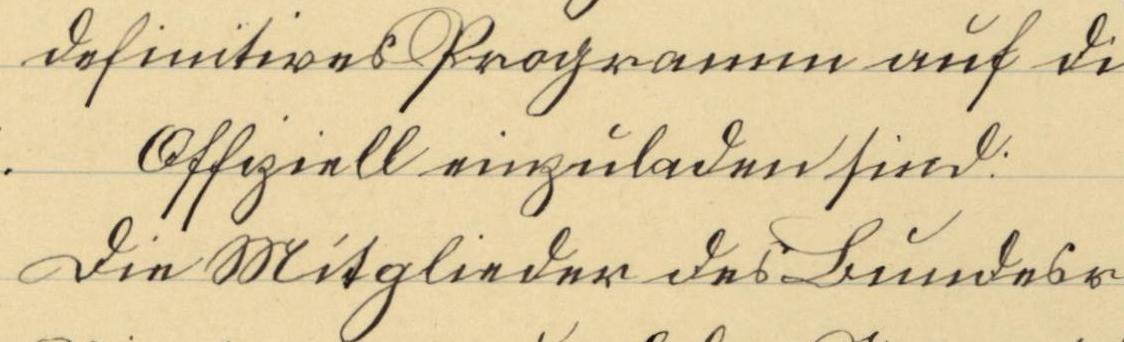 definitives Programm auf di
Offiziell einzuladen sind:
Die Mitglieder des Bundesr